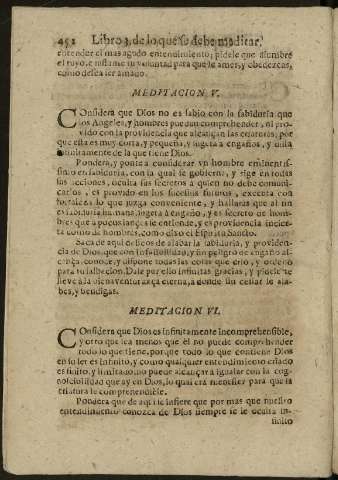 452 Libro 3. de lo que se debe meditar,
entender el mas agudo entendimiento; pidele que alumbre
el tuyo, e inflame tu voluntad para que le ames, y obedezcas,
como desea ser amado.
MEDITACION V.
COnsidera que Dios no es sabio con la sabiduria que
los Angeles, y hombres pueden comprehender, ni pro-
vido con la providencia que alcançan las criaturas; por
que esta es muy corta, y pequeña, y sugeta a engaños, y dista
infinitamente de la que tiene Dios.
Pondera, y ponte a considerar vn hombre eminentis-
simo en sabiduria, con la qual se govierna, y rige en todas
sus acciones, oculta sus secretos a quien no debe comuni-
carlos, es provido en los sucessos futuros, executa con
fortaleza lo que juzga conveniente, y hallaràs que al fin
es sabiduria humana, sugeta à engaño, y es secreto de hom-
bres que a pocos lançes se entiende, y es providencia incier-
ta como de hombres, como dixo el Espiritu Santo.
Saca de aqui deseos de alabar la sabiduria, y providen-
cia de Dios, que con infalibilidad, y sin peligro de engaño al-
cança, conoce, y dispone todas las cosas que criò, y ordenò
para tu salvacion. Dale por ello infinitas gracias, y pidele te
lleve à la bienaventurança eterna, à donde sin cessar le ala-
bes, y bendigas.
MEDITACION VI.
COnsidera que Dios es infinitamente incomprehensible,
y otro que sea menos que èl no puede comprehender
todo lo que tiene, porque todo lo que contiene Dios
en su ser es infinito, y como qualquier entendimiento criado
es finito, y limitado, no puede alcançar à igualar con la cog-
noscibilidad que ay en Dios, lo qual era menester para que la
criatura le comprehendiesse.
Pondera que de aqui se infiere que por mas que nuestro
entendimiento conozca de Dios siempre se le oculta in-
finito